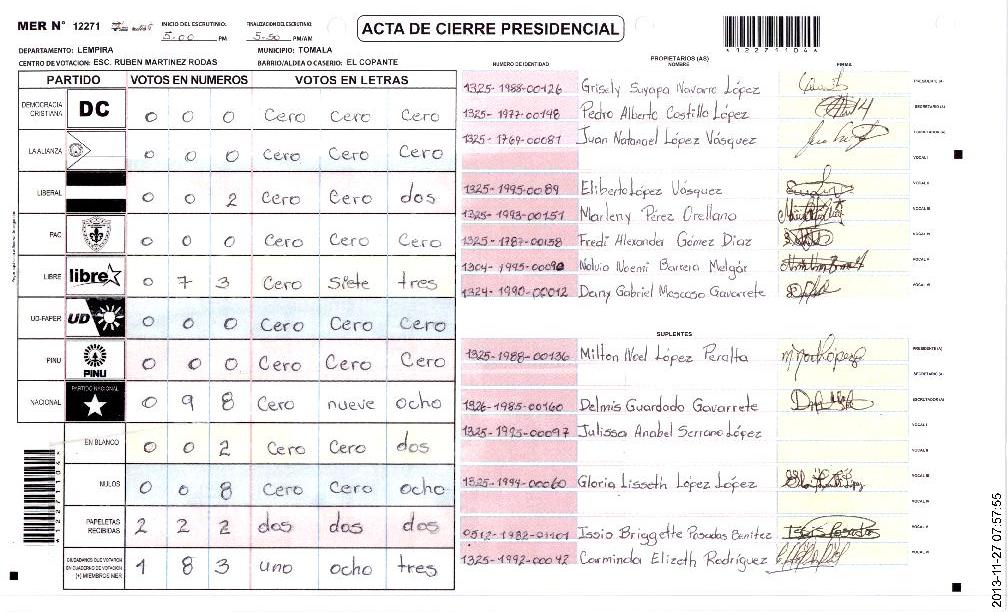 MER N° 12271
INICIO DEL ESCRUTINIO: 5:00 PM
FINALIZACION DEL ESCRUTINIO: 5-50 PM/AM
ACTA DE CIERRE PRESIDENCIAL
A122711044
DEPARTAMENTO: LEMPIRA
MUNICIPIO: TOMALA
CENTRO DE VOTACION: ESC. RUBEN MARTINEZ RODAS
BARRIO/ALDEA O CASERIO: EL COPANTE
PARTIDO VOTOS EN NUMEROS VOTOS EN LETRAS
DEMOCRACIA CRISTIANA DC 0 0 0 Cero Cero Cero
LA ALIANZA 0 0 0 Cero Cero Cero
LIBERAL 0 0 2 Cero Cero dos
PAC 0 0 0 Cero Cero Cero
LIBRE libre 0 7 3 Cero Siete tres
UD-FAPER UD 0 0 0 Cero Cero Cero
PINU PINU 0 0 0 Cero Cero Cero
NACIONAL PARTIDO NACIONAL 0 9 8 Cero nueve ocho
EN BLANCO 0 0 2 Cero Cero dos
NULOS 0 0 8 Cero Cero ocho
PAPELETAS RECIBIDAS 2 2 2 dos dos dos
CIUDADANOS QUE VOTARON EN CUADERNO DE VOTACION (+) MIEMBROS MER 1 8 3 uno ocho tres
PROPIETARIOS (AS)
NUMERO DE IDENTIDAD NOMBRE FIRMA
1325-1988-00126 Grisely Suyapa Navarro López PRESIDENTE (A)
1325-1977-00148 Pedro Alberto Castillo López SECRETARIO (A)
1325-1769-00081 Juan Natanael López Vásquez ESCRUTADOR (A)
VOCAL I
1325-1995-00189 Eliberto López Vásquez VOCAL II
1325-1993-00151 Marleny Pérez Orellano VOCAL III
1325-1787-00158 Fredi Alexanda Gómez Diaz VOCAL IV
1304-1995-00090 Nolvia Noemi Barrera Melgár VOCAL V
1324-1990-00012 Dany Gabriel Moscoso Gavarrete VOCAL VI
SUPLENTES
1325-1988-00136 Milton Noel López Peralta PRESIDENTE (A)
SECRETARIO (A)
1326-1985-00160 Delmis Guardado Gavarrete ESCRUTADOR (A)
1325-1995-00097 Julissa Anabel Serrano López VOCAL I
VOCAL II
1325-1994-00060 Gloria Lisseth López López VOCAL III
VOCAL IV
0512-1982-01101 Issio Briggette Posadas Benitez VOCAL V
1325-1992-00042 Carminda Elizeth Rodríguez VOCAL VI
2013-11-27 07:57:55